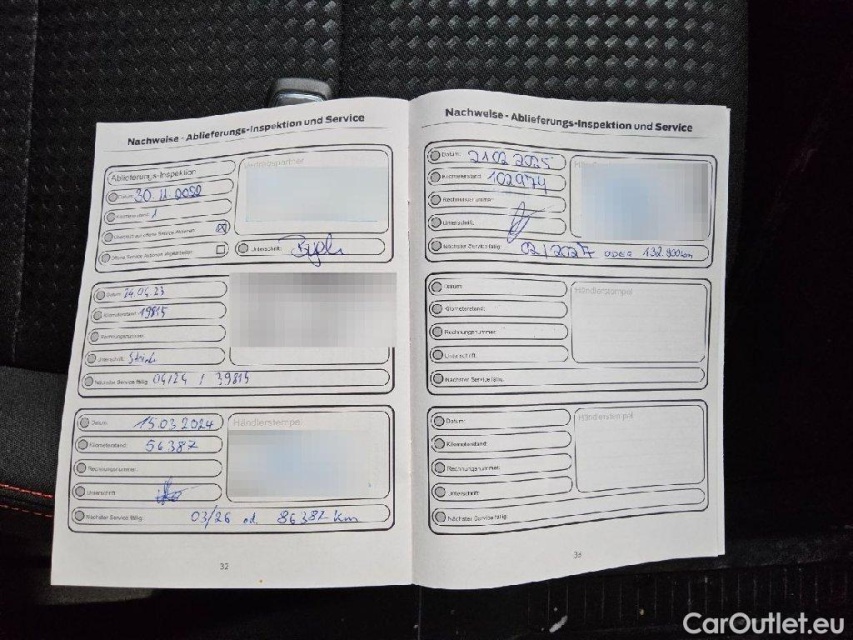 Nachweise - Ablieferungs-Inspektion und Service
Ablieferungs-Inspektion
Datum: 30 11 0022
Kilometerstand: 1
Unterschrift:
Datum: 24.04.23
Kilometerstand: 19815
Rechnungsnummer:
Unterschrift:
Nächster Service fällig: 04/24 / 39815
Datum: 15.03.2024
Händlerstempel
Kilometerstand: 56387
Rechnungsnummer:
Unterschrift:
Nächster Service fällig: 03/26 od. 86387 km
32
Nachweise - Ablieferungs-Inspektion und Service
Datum: 21 02 2025
Kilometerstand: 102974
Rechnungsnummer:
Unterschrift:
Nächster Service fällig: 02/2027 ODER 132.900km
Datum:
Händlerstempel
Kilometerstand:
Rechnungsnummer:
Unterschrift:
Nächster Service fällig:
Datum:
Händlerstempel
Kilometerstand:
Rechnungsnummer:
Unterschrift:
Nächster Service fällig:
CarOutlet.eu